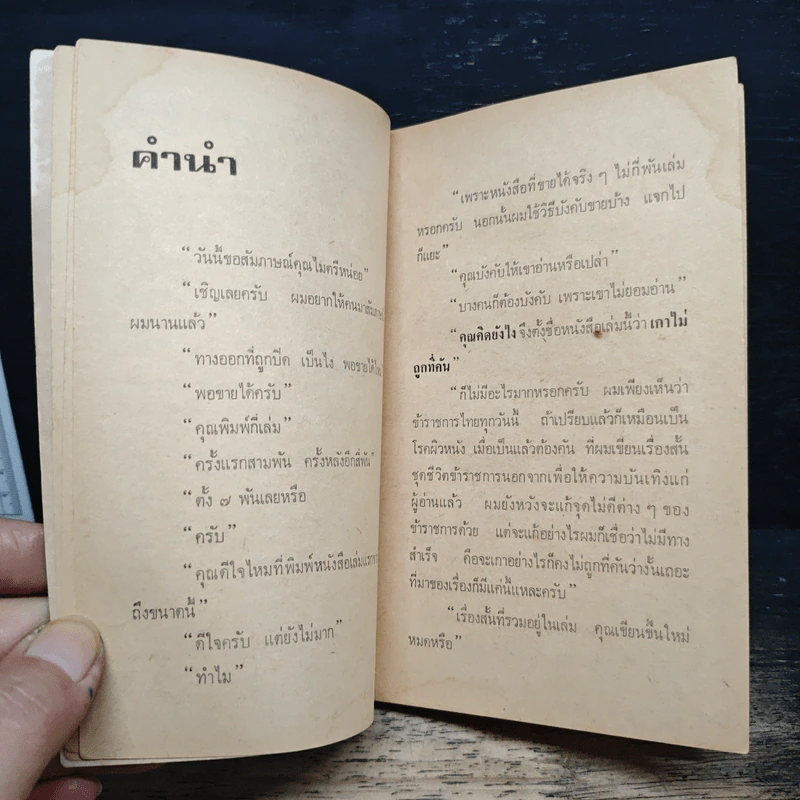 คำนำ
“วันนี้ขอสัมภาษณ์คุณไมตรีหน่อย”
“เชิญเลยครับ ผมอยากให้คนมาสัมภาษณ์
ผมนานแล้ว”
“ทางออกที่ถูกปิด เป็นไง พอขายได้ไหม
“พอขายได้ครับ”
“คุณพิมพ์กี่เล่ม”
“ครั้งแรกสามพัน ครั้งหลังอีกสี่พัน”
“ตั้ง ๗ พันเลยหรือ
“ครับ”
“คุณดีใจไหมที่พิมพ์หนังสือเล่มแรก
ถึงขนาดนี้”
“ดีใจครับ แต่ยังไม่มาก”
“ทำไม”
“เพราะหนังสือที่ขายได้จริง ๆ ไม่กี่พันเล่ม
หรอกครับ นอกนั้นผมใช้วิธีบังคับขายบ้าง แจกไป
ก็แยะ”
“คุณบังคับให้เขาอ่านหรือเปล่า”
“บางคนก็ต้องบังคับ เพราะเขาไม่ยอมอ่าน”
“คุณคิดยังไง จึงตั้งชื่อหนังสือเล่มนี้ว่า เกาไม่
ถูกที่คัน”
“ก็ไม่มีอะไรมากหรอกครับ ผมเพียงเห็นว่า
ข้าราชการไทยทุกวันนี้ ถ้าเปรียบแล้วก็เหมือนเป็น
โรคผิวหนัง เมื่อเป็นแล้วต้องคัน ที่ผมเขียนเรื่องสั้น
ชุดชีวิตข้าราชการนอกจากเพื่อให้ความบันเทิงแก่
ผู้อ่านแล้ว ผมยังหวังจะแก้จุดไม่ดีต่าง ๆ ของ
ข้าราชการด้วย แต่จะแก้อย่างไรผมก็เชื่อว่าไม่มีทาง
สำเร็จ คือจะเกาอย่างไรก็คงไม่ถูกที่คันว่างั้นเถอะ
ที่มาของเรื่องก็มีแค่นี้แหละครับ”
“เรื่องสั้นที่รวมอยู่ในเล่ม คุณเขียนขึ้นใหม่
หมดหรือ”